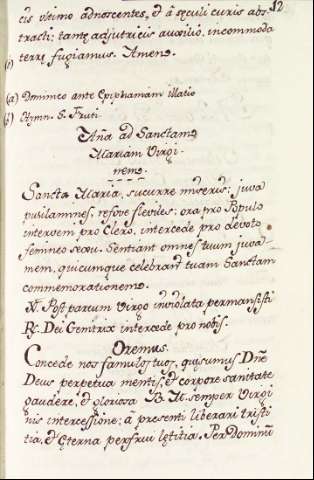 12
cis vitimo adnoscentes, et â sęculi curis abs-
tracti; tantę adjutricis auxilio, incommoda
terrę fugiamus. Amen.
(1)
(a) Dominico ante Epiphaniam illatio
(1) Hymn. S. Fruti
Aña ad Sanctam
Mariam Virgi-
nem.
Sancta Maria, sucurre miseris; juva
pusilamnes; refove fleviles; ora pro Populo
interveni pro Clero, intercede pro devoto
femineo sexu. Sentiant omnes tuum juva-
men, quicumque celebrant tuam Sanctam
commemorationem.
V. Post partum Virgo inviolata permansisti
R. Dei Genitrix intercede pro nobis.
Oremus.
Concede nos famulos tuos, quęsumus Dñe
Deus perpetua mentis, et corpore sanitate
gaudere, et gloriosa B. M. semper Virgi
nis intercessione; â presenti liberari tristi
tia, et ęterna perfrui lętitia. Per Dominũ